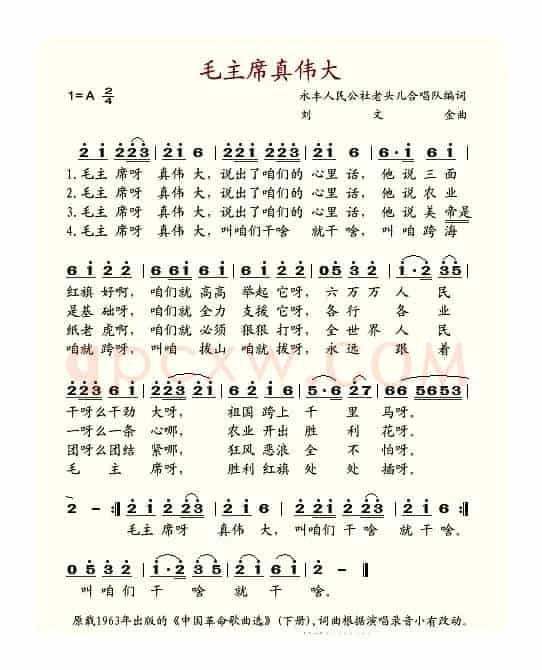 毛主席真伟大
1=A 2/4 永丰人民公社老头儿合唱队编词
刘文金曲
2 i 2 2 3 | 2 i 6 | 2 2 i 2 2 3 | 2 i 6 | 6 · i 2 i |
1.毛主席呀 真伟大,说出了咱们的心里话,他说三面
2.毛主席呀 真伟大,说出了咱们的心里话,他说农业
3.毛主席呀 真伟大,说出了咱们的心里话,他说美帝是
4.毛主席呀 真伟大,叫咱们干啥 就干啥,叫咱跨海
6 i 2 2 | 6 6 i 6 i | 2 3 i 2 | 0 5 3 2 | i · 2 3 5 |
红旗好啊,咱们就高高举起它呀,六万万人民
是基础呀,咱们就全力支援它呀,各行各业
纸老虎啊,咱们就必须狠狠打呀,全世界人民
咱就跨呀,叫咱拔山咱就拔呀,永远跟着
qpcxw.COM
干呀么干劲大呀,祖国跨上千里马呀。
一呀么一条心哪,农业开出胜利花呀。
团呀么团结紧哪,狂风恶浪全不怕呀。
毛主席呀,胜利红旗处处插呀。
毛主席呀 真伟大,叫咱们干啥就干啥。
0 5 3 2
叫咱们干啥就干啥。
原载1963年出版的《中国革命歌曲选》(下册),词曲根据演唱录音小有改动。